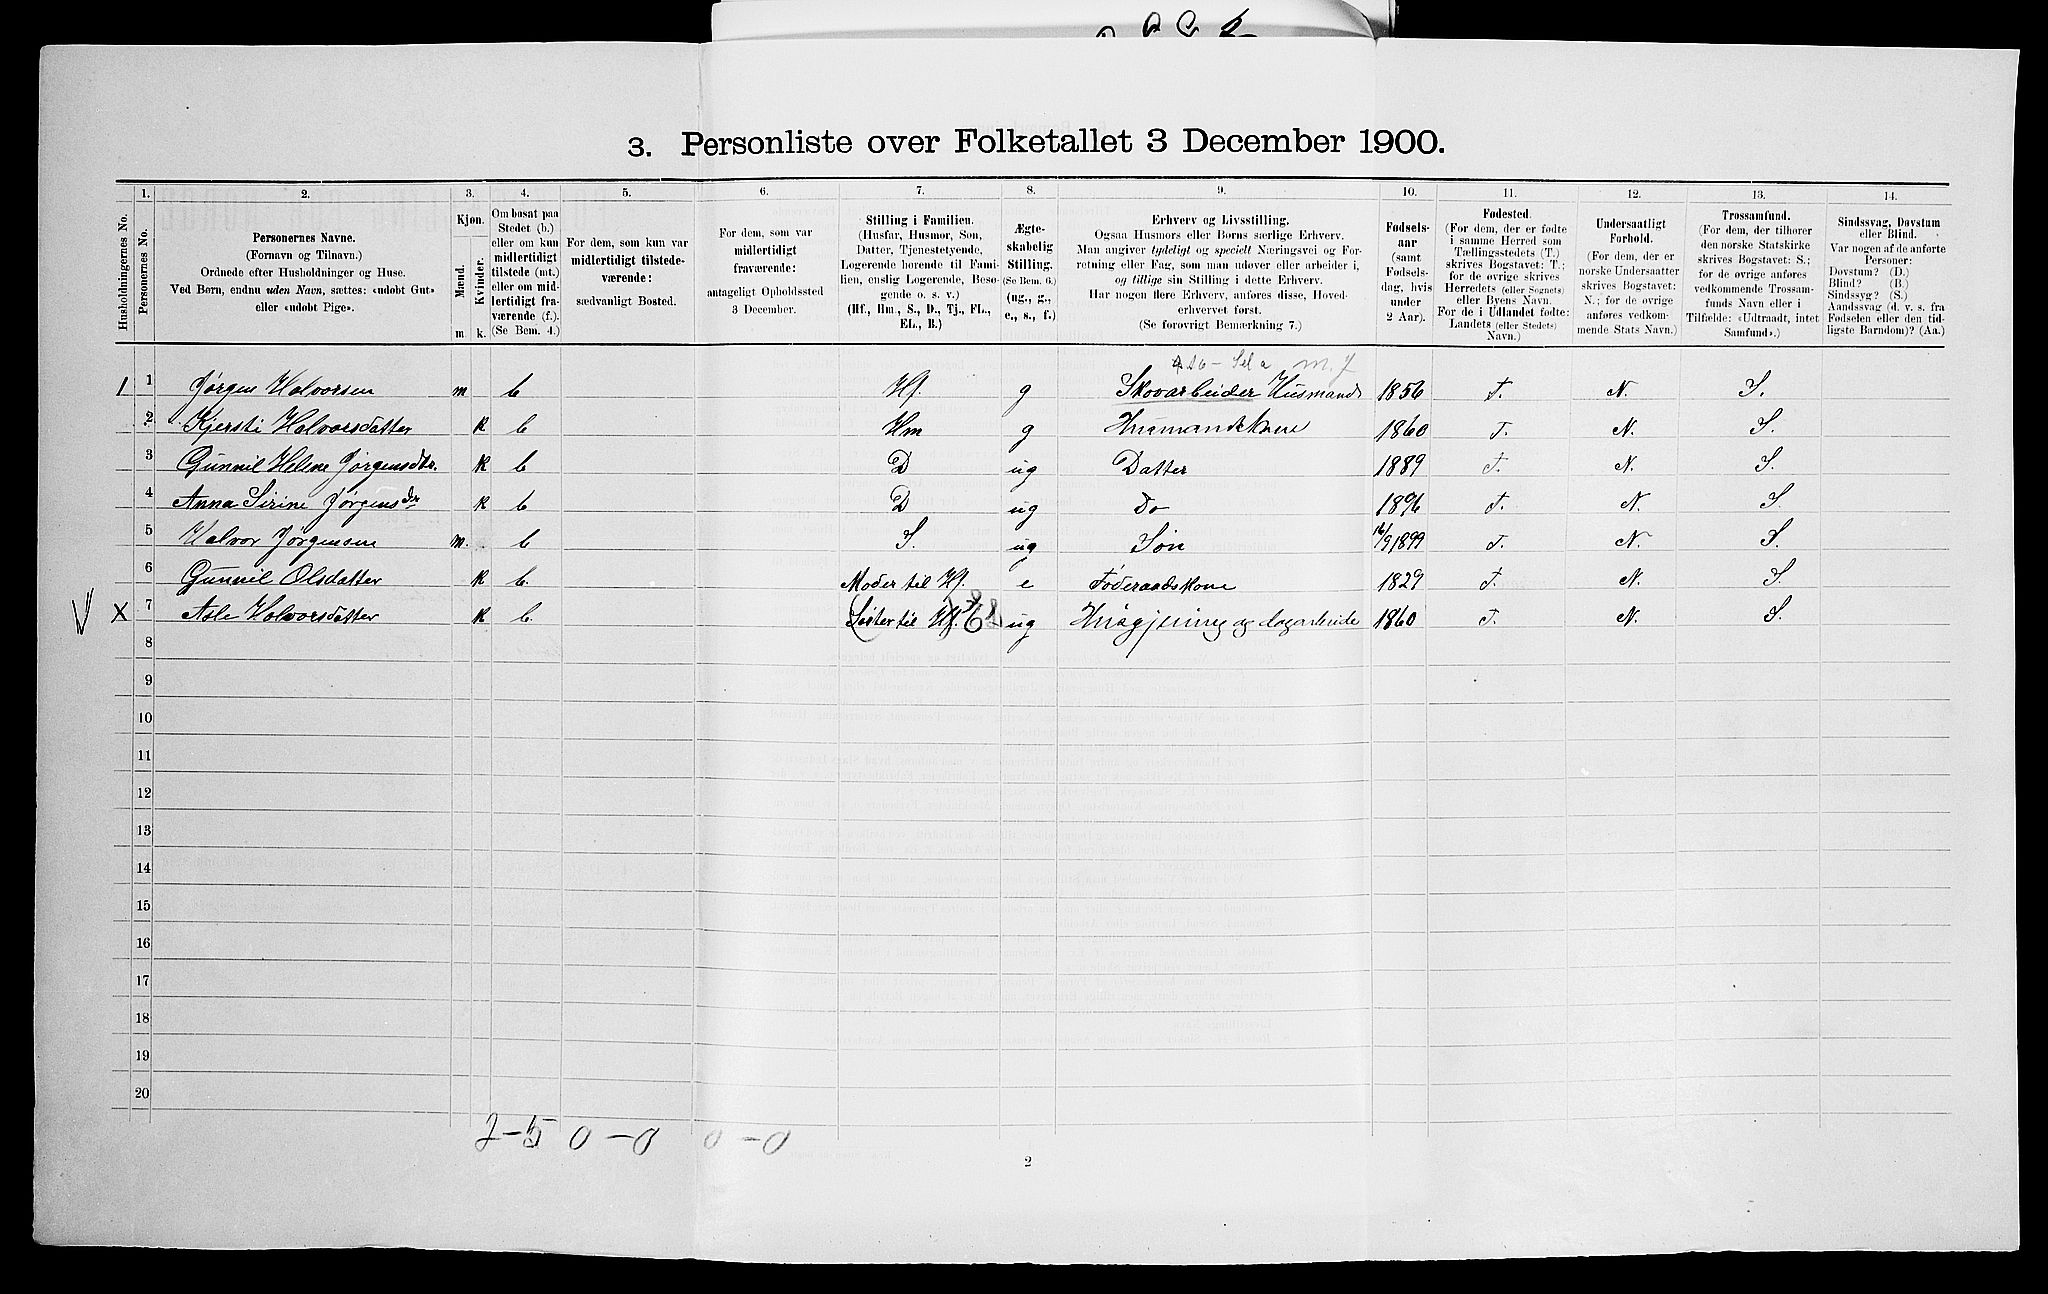 3. Personliste over Folketallet 3 December 1900.
1. 2. 3. 4. 5. 6. 7. 8. 9. 10. 11. 12. 13. 14.
Husholdningernes No.
Personernes No.
Personernes Navne.
(Fornavn og Tilnavn.)
Ordnede efter Husholdninger og Huse.
Ved Børn, endnu uden Navn, sættes: «udøbt Gut»
eller «udøbt Pige».
Kjøn.
Mænd.
Kvinder.
m k.
Om bosat paa
Stedet (b.)
eller om kun
midlertidigt
tilstede (mt.)
eller om mid-
lertidigt fra-
værende (f.).
(Se Bem. 4.)
For dem, som kun var
midlertidigt tilstede-
værende:
sædvanligt Bosted.
For dem, som var
midlertidigt
fraværende:
antageligt Opholdssted
3 December.
Stilling i Familien.
(Husfar, Husmor, Søn,
Datter, Tjenestetyende,
Logerende hørende til Fami-
lien, enslig Logerende, Besø-
gende o. s. v.)
(Hf., Hm., S., D., Tj., FL.,
EL., B.)
Ægte-
skabelig
Stilling.
(Se Bem. 6.)
(ug., g.,
e., s., f.)
Erhverv og Livsstilling.
Ogsaa Husmors eller Børns særlige Erhverv.
Man angiver tydeligt og specielt Næringsvei og For-
retning eller Fag, som man udøver eller arbeider i,
og tillige sin Stilling i dette Erhverv.
Har nogen flere Erhverv, anføres disse, Hoved-
erhvervet først.
(Se forøvrigt Bemærkning 7.)
Fødsels-
aar
(samt
Fødsels-
dag, hvis
under
2 Aar).
Fødested.
(For dem, der er fødte
i samme Herred som
Tællingsstedets (T.)
skrives Bogstavet: T.;
for de øvrige skrives
Herredets (eller Sognets)
eller Byens Navn.
For de i Udlandet fødte:
Landets (eller Stedets)
Navn.)
Undersaatligt
Forhold.
(For dem, der er
norske Undersaatter
skrives Bogstavet:
N.; for de øvrige
anføres vedkom-
mende Stats Navn.)
Trossamfund.
(For dem, der tilhører
den norske Statskirke
skrives Bogstavet: S.;
for de øvrige anføres
vedkommende Trossam-
funds Navn eller i
Tilfælde: «Udtraadt, intet
Samfund».)
Sindssvag, Døvstum
eller Blind.
Var nogen af de anførte
Personer:
Døvstum? (D.)
Blind? (B.)
Sindssyg? (S.)
Aandssvag (d. v. s. fra
Fødselen eller den tid-
ligste Barndom)? (Aa.)
m. f
1 1 Jørgen Halvorsen m b Hf. g Skovarbeider Husmand 1856 T. N. S.
2 Kjersti Halvorsdatter k b Hm g Husmandskone 1860 T. N. S.
3 Gunnil Helene Jørgensdtr. k b D ug Datter 1889 T. N. S.
4 Anna Sirine Jørgensdr k b D ug Do 1896 T. N. S.
5 Halvor Jørgensen m. b S. ug Søn 16/9 1899 T. N. S.
6 Gunnil Olsdatter k b. Moder til Hf. e Føderaadskone 1829 T. N. S.
X 7 Asle Halvorsdatter k b. Søster til Hf. ug Husgjerning og dagarbeide 1860 T. N. S.
8
9
10
11
12
13
14
15
16
17
18
19
20
2-5 0-0 0-0
2